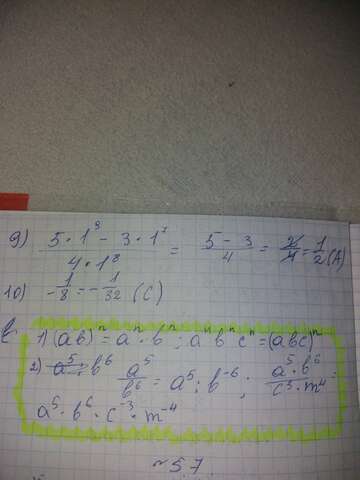 9) (5 · 1⁸ − 3 · 1⁷) / (4 · 1⁸) = (5 − 3) / 4 = 2/4 = 1/2 (A)
10) −1/8 = −1/32 (C)
1) (ab)ⁿ = aⁿ · bⁿ ; aⁿ bⁿ cⁿ = (abc)ⁿ
2) a⁵ : b⁶ a⁵/b⁶ = a⁵ : b⁻⁶ ; (a⁵ · b⁶) / (c³ · m⁴) =
a⁵ · b⁶ · c⁻³ · m⁻⁴
~ 57